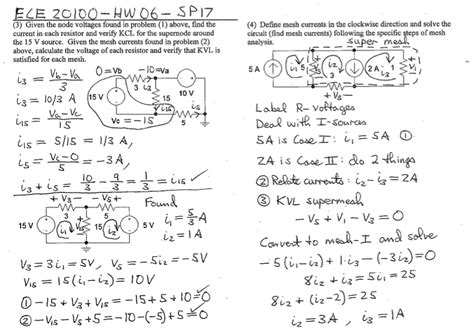 ECE 20100 - HW 06 - SP17
(3) Given the node voltages found in problem (1) above, find the
current in each resistor and verify KCL for the supernode around
the 15 V source. Given the mesh currents found in problem (2)
above, calculate the voltage of each resistor and verify that KVL is
satisfied for each mesh.
i3 = (Vb-Va)/3
i3 = 10/3 A
i15 = (Va-Vc)/15
i15 = 5/15 = 1/3 A,
i5 = (Vc-0)/5 = -3A,
i3 + i5 = 10/3 - 9/3 = 1/3 = i15 ✓
0=Vb
-10=Va
3 i3
15 V
15
i15
10 V
i5
5
Vc = -15
+ V3 -
- V5 +
3
5
15 V
i1
V15
15
i2
5 V
Found
i1 = 5/3 A
i2 = 1A
V3 = 3i1 = 5V, V5 = -5i2 = -5V
V15 = 15(i1-i2) = 10V
① -15 + V3 + V15 = -15+5+10=0 ✓
② -V15 - V5 + 5 = -10-(-5)+5=0 ✓
(4) Define mesh currents in the clockwise direction and solve the
circuit (find mesh currents) following the specific steps of mesh
analysis.
super mesh
5 A
i1
5
i2
2A
i3
1
3
+ V3 -
Label R-voltages
Deal with I-sources
5A is Case I: i1 = 5A ①
2A is Case II: do 2 things
② Relate currents: i2-i3=2A
③ KVL supermesh
-V5 + V1 - V3 = 0
Convert to mesh-I and solve
-5(i1-i2)+1·i3-(-3i2)=0
8i2 + i3 = 5i1 = 25
8i2 + (i2-2) = 25
i2 = 3A , i3 = 1A